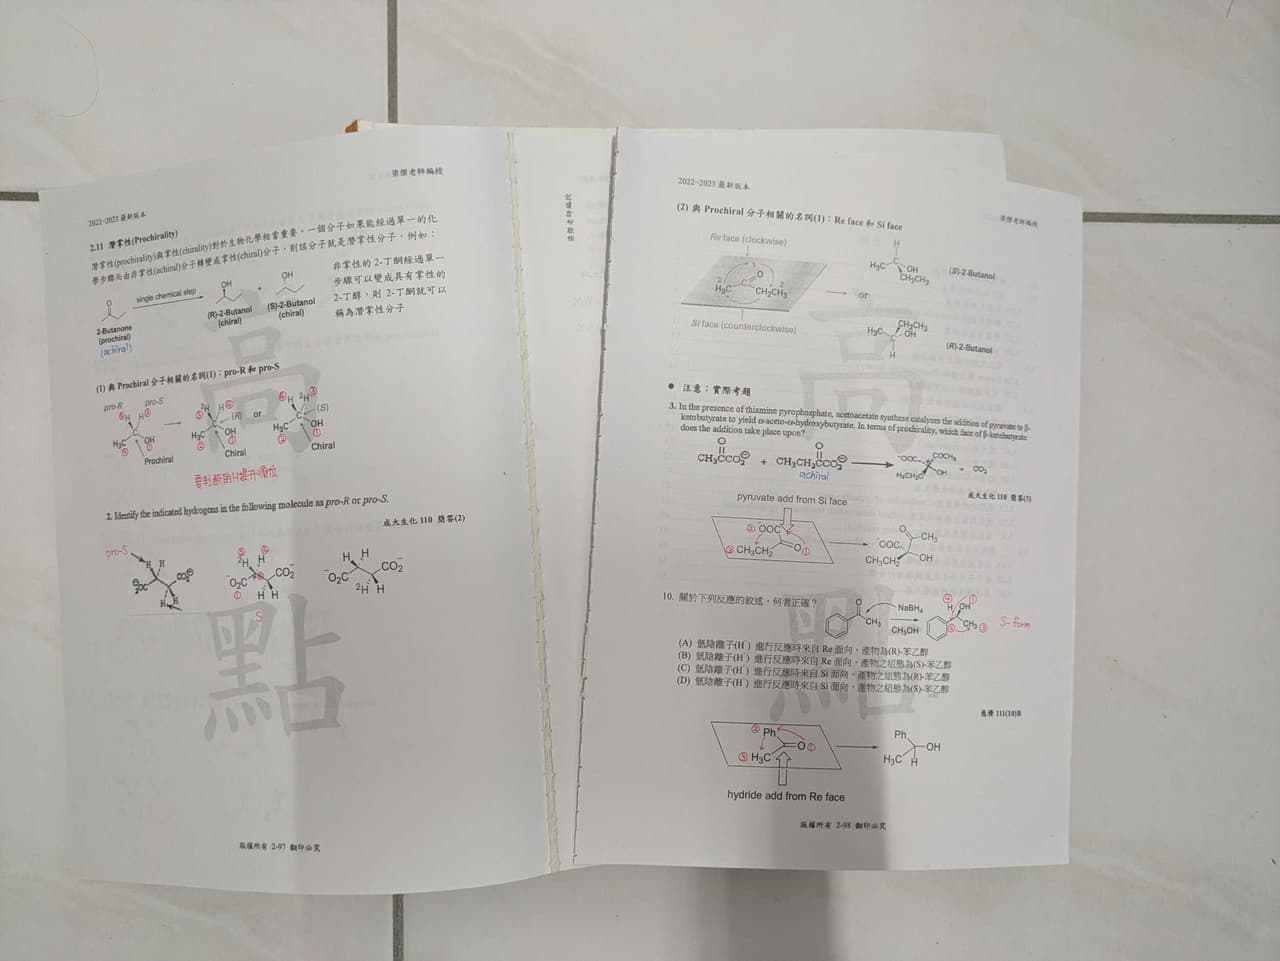 梁傑老師編授
2022~2023 最新版本
2.11 潛掌性(Prochirality)
潛掌性(prochirality)與掌性(chirality)對於生物化學相當重要，一個分子如果能經過單一的化
學步驟而由非掌性(achiral)分子轉變成掌性(chiral)分子，則該分子就是潛掌性分子，例如：
O
2-Butanone
(prochiral)
(achiral)
single chemical step
OH
(R)-2-Butanol
(chiral)
+
OH
(S)-2-Butanol
(chiral)
非掌性的 2-丁酮經過單一
步驟可以變成具有掌性的
2-丁醇，則 2-丁酮就可以
稱為潛掌性分子
(1) 與 Prochiral 分子相關的名詞(1)：pro-R 和 pro-S
pro-R pro-S
③H H④
H₃C C OH
② ①
Prochiral
③²H H④
(R)
H₃C C OH
② ①
Chiral
or
④H ²H③
(S)
H₃C C OH
② ①
Chiral
要判斷的H提升順位
2. Identify the indicated hydrogens in the following molecule as pro-R or pro-S.
成大生化 110 簡答(2)
pro-S
H H
⊖O₂C CO₂⊖
H H
③ ④
²H H
⁻O₂C CO₂⁻
① H H
S
H H
⁻O₂C CO₂⁻
²H H
高
點
版權所有 2-97 翻印必究
2022~2023 最新版本
梁傑老師編授
(2) 與 Prochiral 分子相關的名詞(1)：Re face 和 Si face
Re face (clockwise)
1
O
3 2
H₃C C CH₂CH₃
Si face (counterclockwise)
H
H₃C C OH
CH₂CH₃
(S)-2-Butanol
or
CH₂CH₃
H₃C C OH
H
(R)-2-Butanol
● 注意：實際考題
3. In the presence of thiamine pyrophosphate, acetoacetate synthase catalyzes the addition of pyruvate to β-
ketobutyrate to yield α-aceto-α-hydroxybutyrate. In terms of prochirality, which face of β-ketobutyrate
does the addition take place upon?
O O
CH₃CCO₂⊖ + CH₃CH₂CCO₂⊖
achiral
⁻OOC COCH₃
H₃CH₂C OH
+ CO₂
成大生化 110 簡答(3)
pyruvate add from Si face
② ⁻OOC
③ CH₃CH₂ O ①
O
CH₃
⁻OOC
CH₃CH₂ OH
10. 關於下列反應的敘述，何者正確？
O
CH₃
NaBH₄
CH₃OH
④ ①
H OH
② CH₃ ③
S-form
(A) 氫陰離子(H⁻) 進行反應時來自 Re 面向，產物為(R)-苯乙醇
(B) 氫陰離子(H⁻) 進行反應時來自 Re 面向，產物之組態為(S)-苯乙醇
(C) 氫陰離子(H⁻) 進行反應時來自 Si 面向，產物為(R)-苯乙醇
(D) 氫陰離子(H⁻) 進行反應時來自 Si 面向，產物之組態為(S)-苯乙醇
慈濟 111(10)B
② Ph
O ①
③ H₃C
Ph
OH
H₃C H
hydride add from Re face
高
點
版權所有 2-98 翻印必究